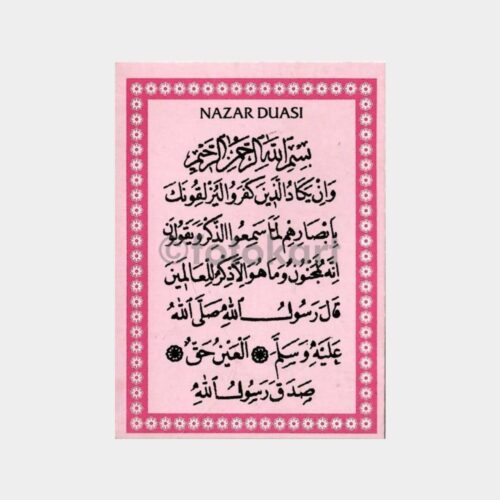 NAZAR DUASI
بِسْمِ اللهِ الرَّحْمٰنِ الرَّحِيمِ
وَاِنْ يَكَادُ الَّذِينَ كَفَرُوا لَيُزْلِقُونَكَ
بِاَبْصَارِهِمْ لَمَّا سَمِعُوا الذِّكْرَ وَيَقُولُونَ
اِنَّهُ لَمَجْنُونٌ وَمَا هُوَ اِلَّا ذِكْرٌ لِلْعَالَمِينَ
قَالَ رَسُولُ اللهِ صَلَّى اللهُ
عَلَيْهِ وَسَلَّمَ ۞ اَلْعَيْنُ حَقٌّ ۞
صَدَقَ رَسُولُ اللهِ
©fotokart